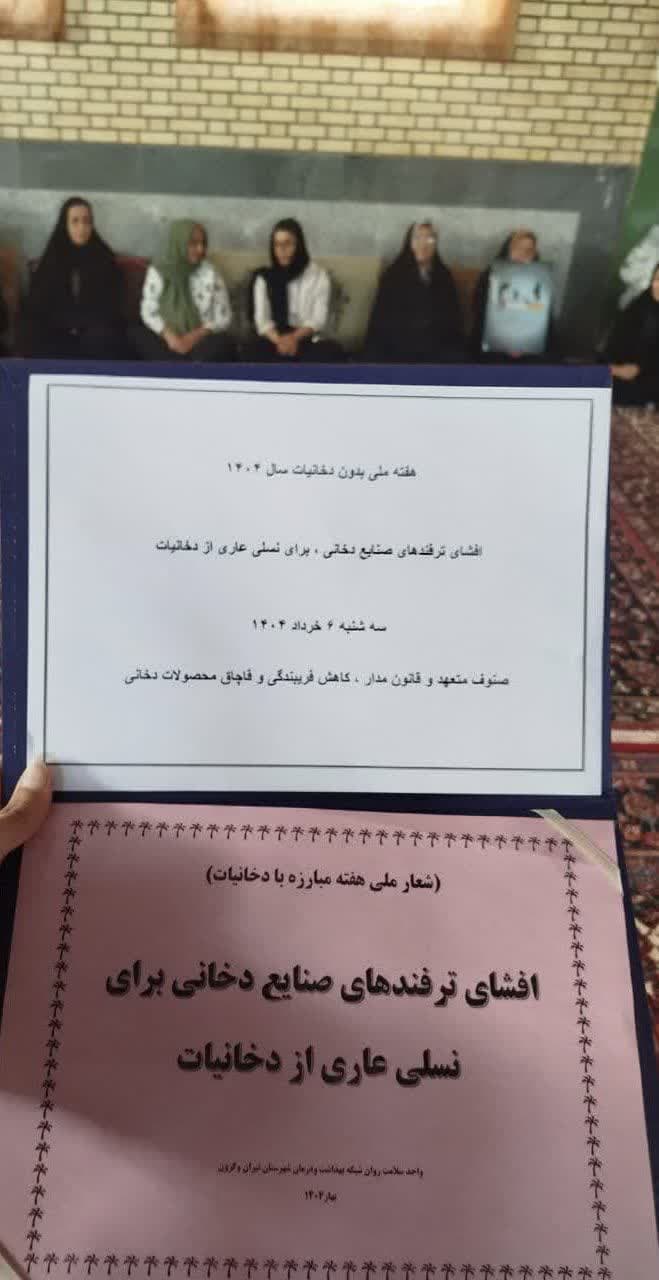 هفته ملی بدون دخانیات سال ۱۴۰۴
افشای ترفندهای صنایع دخانی ، برای نسلی عاری از دخانیات
سه شنبه ۶ خرداد ۱۴۰۴
صنوف متعهد و قانون مدار ، کاهش فریبندگی و قاچاق محصولات دخانی
(شعار ملی هفته مبارزه با دخانیات)
افشای ترفندهای صنایع دخانی برای
نسلی عاری از دخانیات
واحد سلامت روان شبکه بهداشت ودرمان شهرستان تیران وکرون
بهار۱۴۰۴